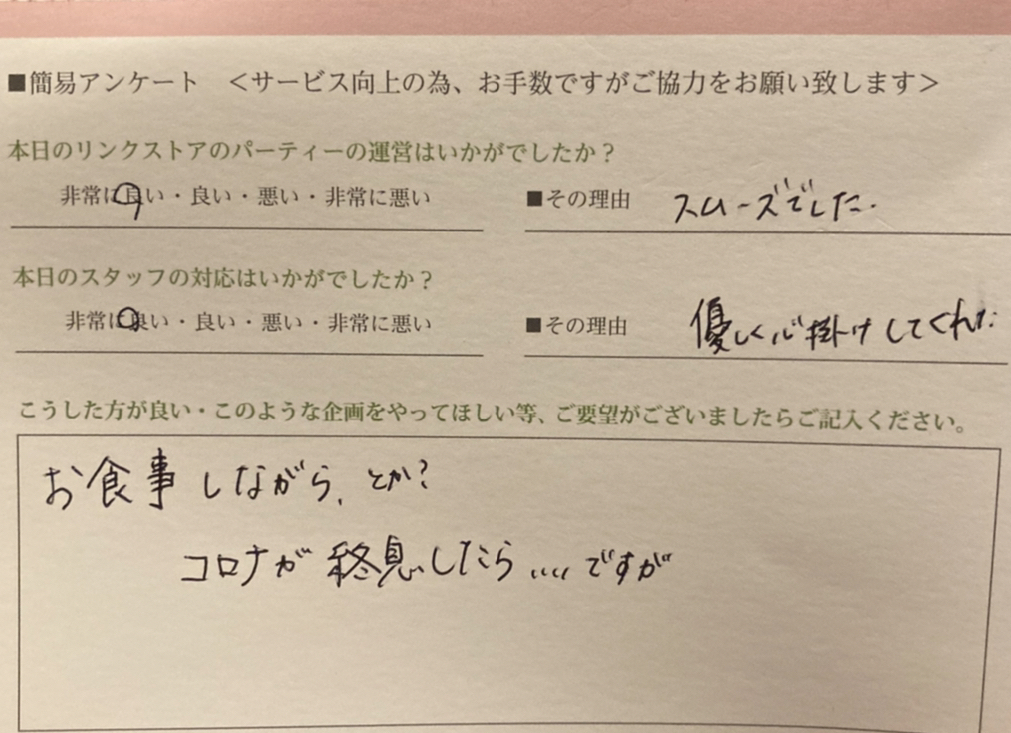 ■簡易アンケート <サービス向上の為、お手数ですがご協力をお願い致します>
本日のリンクストアのパーティーの運営はいかがでしたか?
非常に良い・良い・悪い・非常に悪い ■その理由 スムーズでした.
本日のスタッフの対応はいかがでしたか?
非常に良い・良い・悪い・非常に悪い ■その理由 優しく心掛けしてくれた
こうした方が良い・このような企画をやってほしい等、ご要望がございましたらご記入ください。
お食事しながら、とか?
コロナが終息したら....ですが